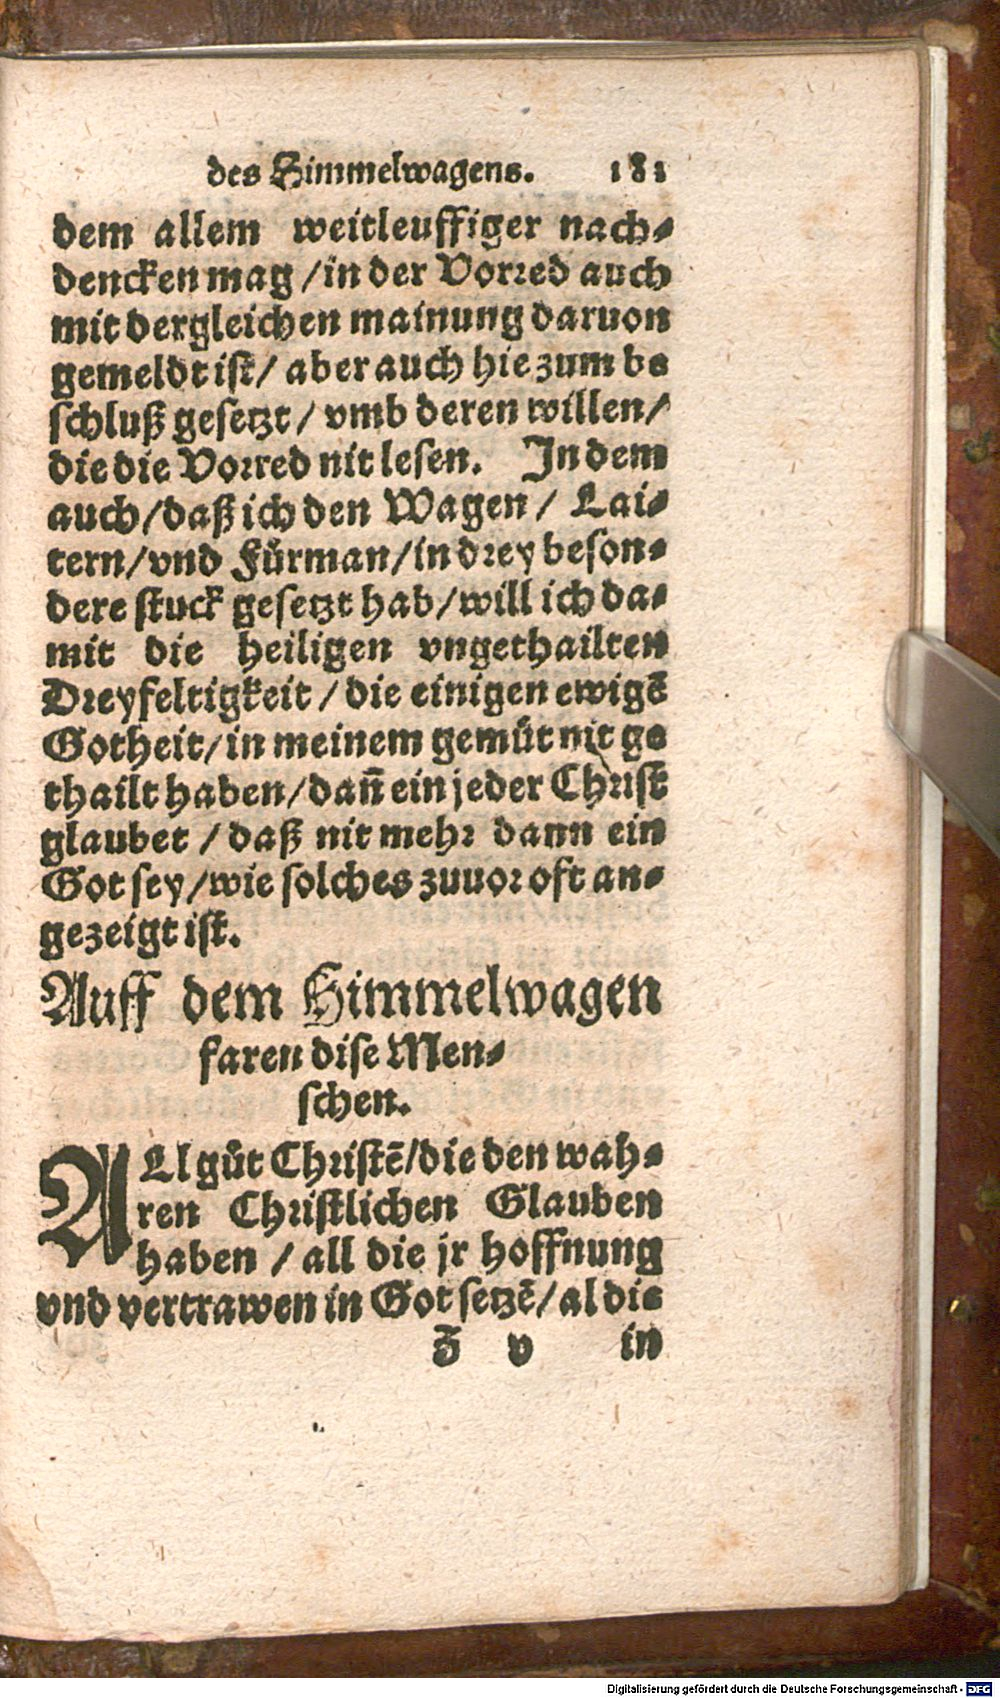 des Himmelwagens. 181
dem allem weitleuffiger nach-
dencken mag / in der Vorred auch
mit dergleichen mainung daruon
gemeldt ist / aber auch hie zum be
schluß gesetzt / vmb deren willen /
die die Vorred nit lesen. In dem
auch / daß ich den Wagen / Lai-
tern / vnd Fürman / in drey beson-
dere stuck gesetzt hab / will ich da-
mit die heiligen vngethailten
Dreyfeltigkeit / die einigen ewigē
Gotheit / in meinem gemüt nit ge
thailt haben / dañ ein jeder Christ
glaubet / daß nit mehr dann ein
Got sey / wie solches zuuor oft an-
gezeigt ist.
Auff dem Himmelwagen
faren dise Men-
schen.
ALl gůt Christē / die den wah-
ren Christlichen Glauben
haben / all die jr hoffnung
vnd vertrawen in Got setzē / al die
Z v in
Digitalisierung gefördert durch die Deutsche Forschungsgemeinschaft - DFG